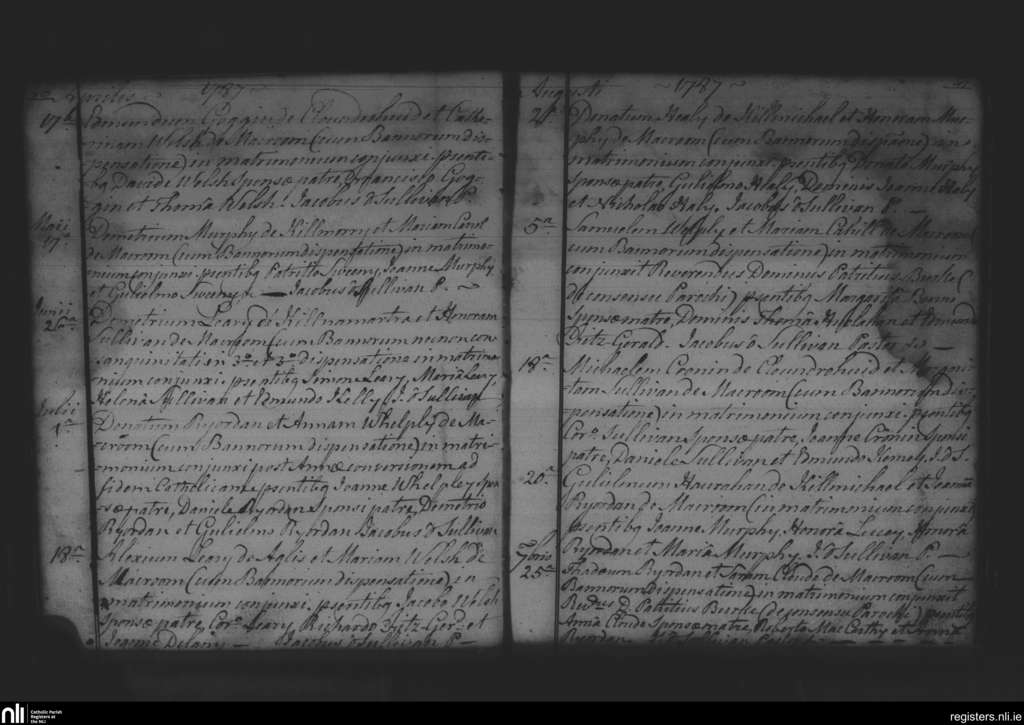 Aprilis 1787
17a Edmundum Goggin de Cloundrohuid et Cathe-
rinam Welsh de Macroom (cum Bannorum dis-
pensatione) in matrimonium conjunxi psenti-
bq Davide Welsh Sponsæ patre, Francisco Gog-
gin et Thomâ Walsh. Jacobus o Sullivan P.
Maii
17a Demetrium Murphy de Killonorry et Mariam
de Macroom (cum Bannorum dispensatione) in matrimo-
nium conjunxi psentibq Patritio Sweeny, Joanne Murphy
et Gulielmo Sweeny. — Jacobus o Sullivan P. ~
Junii
Demetrium Leary de Killnamartra et Honoram
Sullivan de Macroom (cum Bannorum necnon con-
sanguinitatis in 3o et 3o dispensatione) in matrimo-
nium conjunxi psentibq Simone Leary, Mariâ Leary,
Helenâ Sullivan et Edmundo Kelly. J. o Sullivan
Julii
1a Donatum Ryordan et Annam Whelply de Ma-
croom (cum Bannorum dispensatione) in matri-
monium conjunxi post Annæ conversionem ad
fidem Catholicam psentibq Joanne Whelpley Spon-
sæ patre, Daniele Ryordan Sponsi patre, Demetrio
Ryordan et Gulielmo Ryordan Jacobus o Sullivan
18a Alexium Leary de Aglis et Mariam Welsh de
Macroom (cum Bannorum dispensatione) in
matrimonium conjunxi, psentibq Jacobo Welsh
Sponsæ patre, Cors Leary, Richardo Fitz-Gerd. et
Joanne Delany — Jacobus o Sullivan P —
Augusti ~ 1787 ~
2a Donatum Healy de Killmichael et Honoram Mur-
phy de Macroom (cum Bannorum dispãone) in
matrimonium conjunxi, psentibq Donato Murphy
Sponsæ patre, Gulielmo Healy, Dominis Joanne Haly
et Nicholao Haly. Jacobus o Sullivan P. —
5a Samuelem Welply et Mariam de Macroom
cum Bannorum dispensatione) in matrimonium
conjunxit Reverendus Dominus Patritius Burke (
de consensu Parochi) psentibq Margarita
Sponsæ matre, Dominis Thomâ et Edmundo
Fitz-Gerald. Jacobus o Sullivan Pastor
18a Michaelem Cronin de Cloundrohuid et Margari-
tam Sullivan de Macroom (cum Bannorum dis-
pensatione) in matrimonium conjunxi psentibq
Cors. Sullivan Sponsæ patre, Joanne Cronin Sponsi
patre, Daniele Sullivan et Edmundo J. o S.
20a Gulielmum Hourahan de Killmichael et Joannam
Ryordan de Macroom in matrimonium conjunxi
psentibq Joanne Murphy, Honorâ Lucey, Honorâ
Ryordan et Mariâ Murphy. J. o Sullivan P —
7bris
25a Thadæum Ryordan et Saram Cloude de Macroom (cum
Bannorum dispensatione) in matrimonium conjunxit
Revdus D. Patritius Burke (de consensu Parochi) psentibq
Annâ Cloude Sponsæ matre, Roberto MacCarthy et
Ryordan
nli
Catholic Parish
Registers at
the NLI
registers.nli.ie